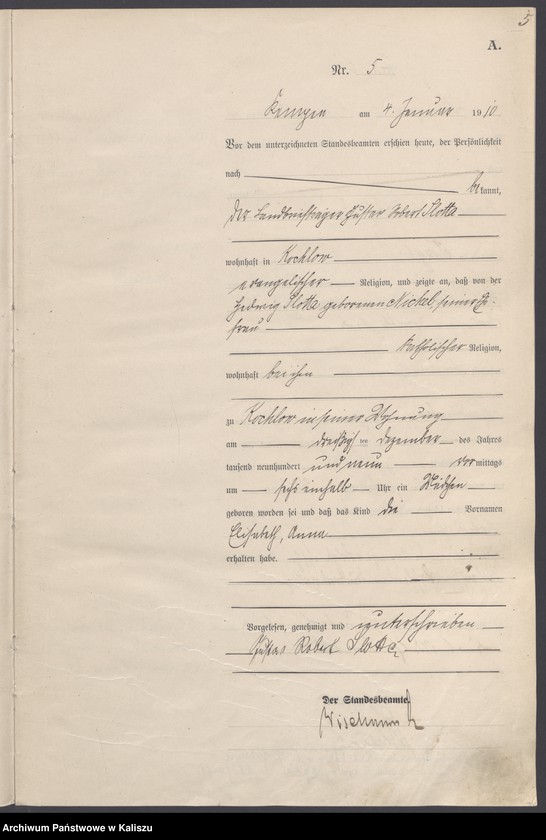 5
A.
Nr. 5
Kempen am 4. Januar 1910
Vor dem unterzeichneten Standesbeamten erschien heute, der Persönlichkeit
nach
bekannt,
der Gustav Robert Slotta
wohnhaft in Kochlow
evangelischer Religion, und zeigte an, daß von der
Hedwig Slotta geborenen Nickel, seiner Ehe-
frau
katholischer Religion,
wohnhaft bei ihm
zu Kochlow in seiner Wohnung
am dreißigsten Dezember des Jahres
tausend neunhundert und neun vormittags
um sechs einhalb Uhr ein Mädchen
geboren worden sei und daß das Kind die Vornamen
Elisabeth, Anna
erhalten habe.
Vorgelesen, genehmigt und unterschrieben
Gustav Robert Slotta
Der Standesbeamte.
Archiwum Państwowe w Kaliszu